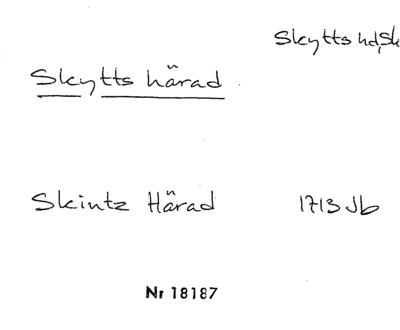 Skytts hd, Sk
Skytts härad
Skintz Härad 1713 Jb
Nr 18187